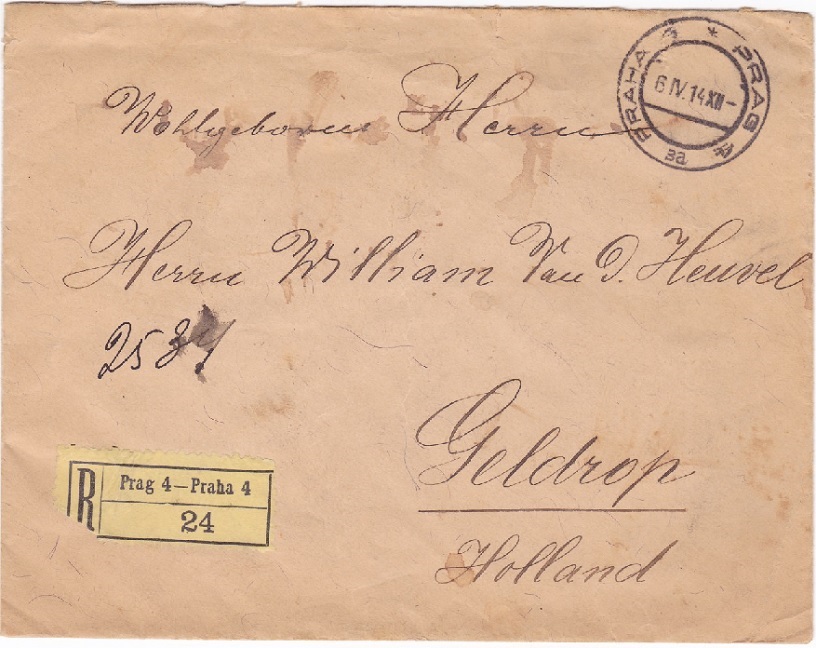 PRAHA 4 * PRAG 4
6 IV. 14 XII-
3a
Wohlgeboren Herrn
Herrn William Van d. Heuvel
Geldrop
Holland
R
Prag 4—Praha 4
24